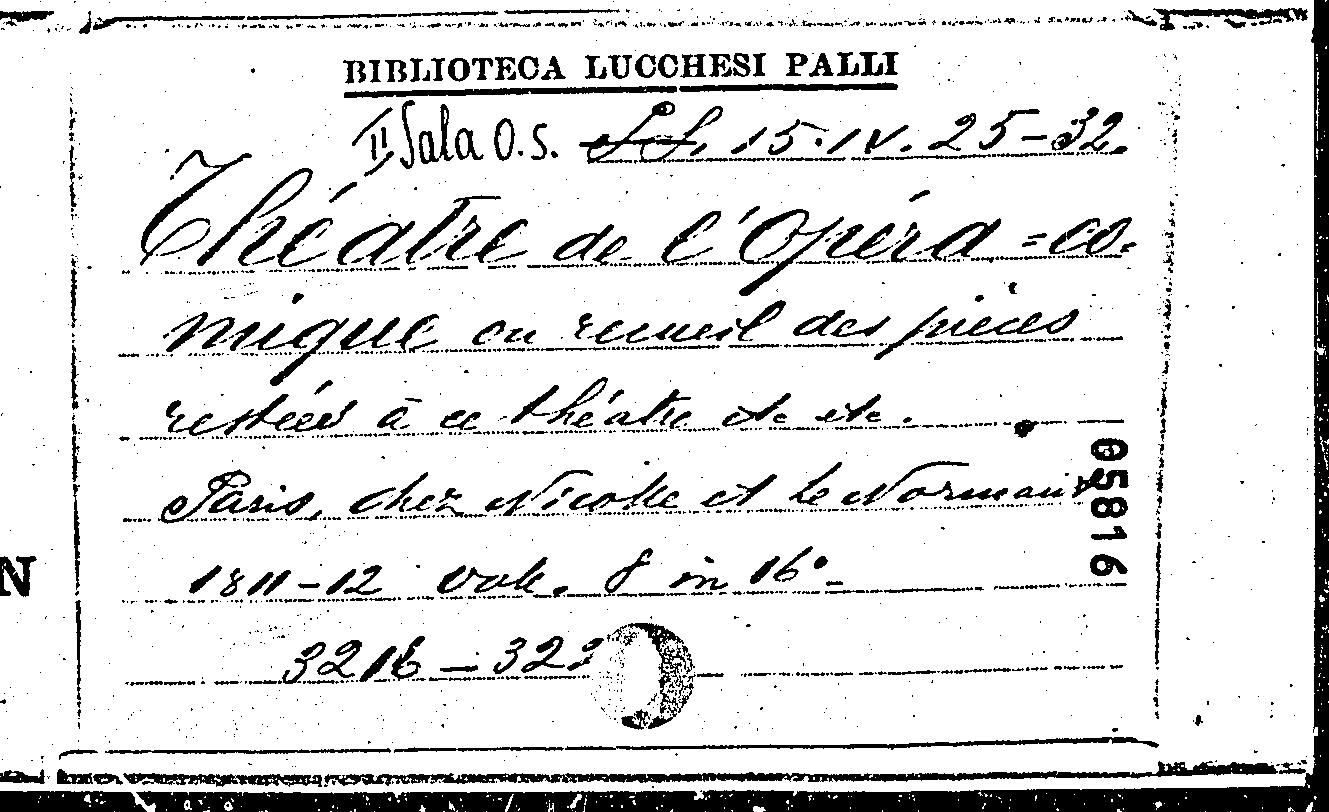 BIBLIOTECA LUCCHESI PALLI
II, Sala O.S. 15.IV.25-32.
Théatre de l'Opéra=co-
mique ou recueil des pièces
restées à ce théatre etc etc.
Paris, chez Nicolle et Le Normant
1811-12 vol. 8 in 16°-
3216 - 322
05816
N